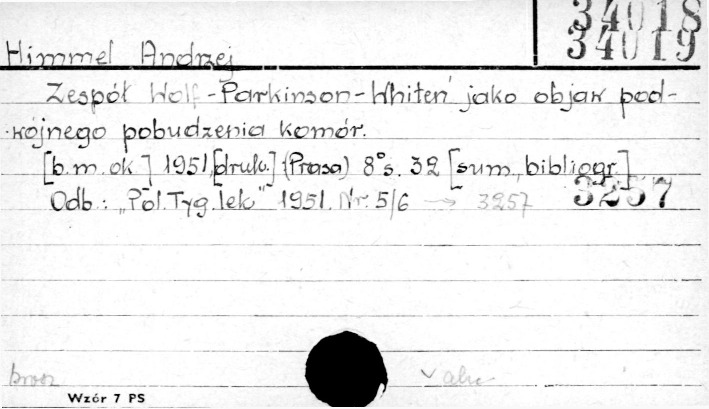 34018
34019
Himmel Andrzej
Zespół Wolf-Parkinson-Whiten' jako objaw pod-
-wójnego pobudzenia komór.
[b.m. ok] 1951, [druk.] (Prasa) 8° s. 32 [sum., bibliogr.]
Odb.: „Pol. Tyg. lek" 1951. Nr. 5/6 → 3257 3257
brosz
Wzór 7 PS